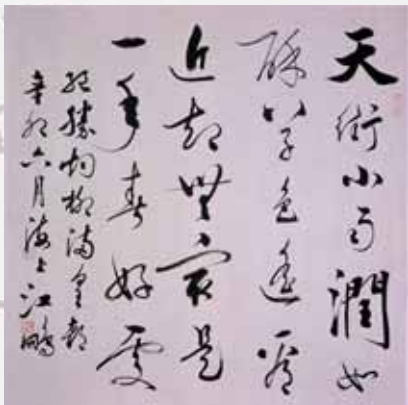 天街小雨潤如
酥草色遙看
近却無最是
一年春好處
絕勝煙柳滿皇都
辛卯六月海上江鵬